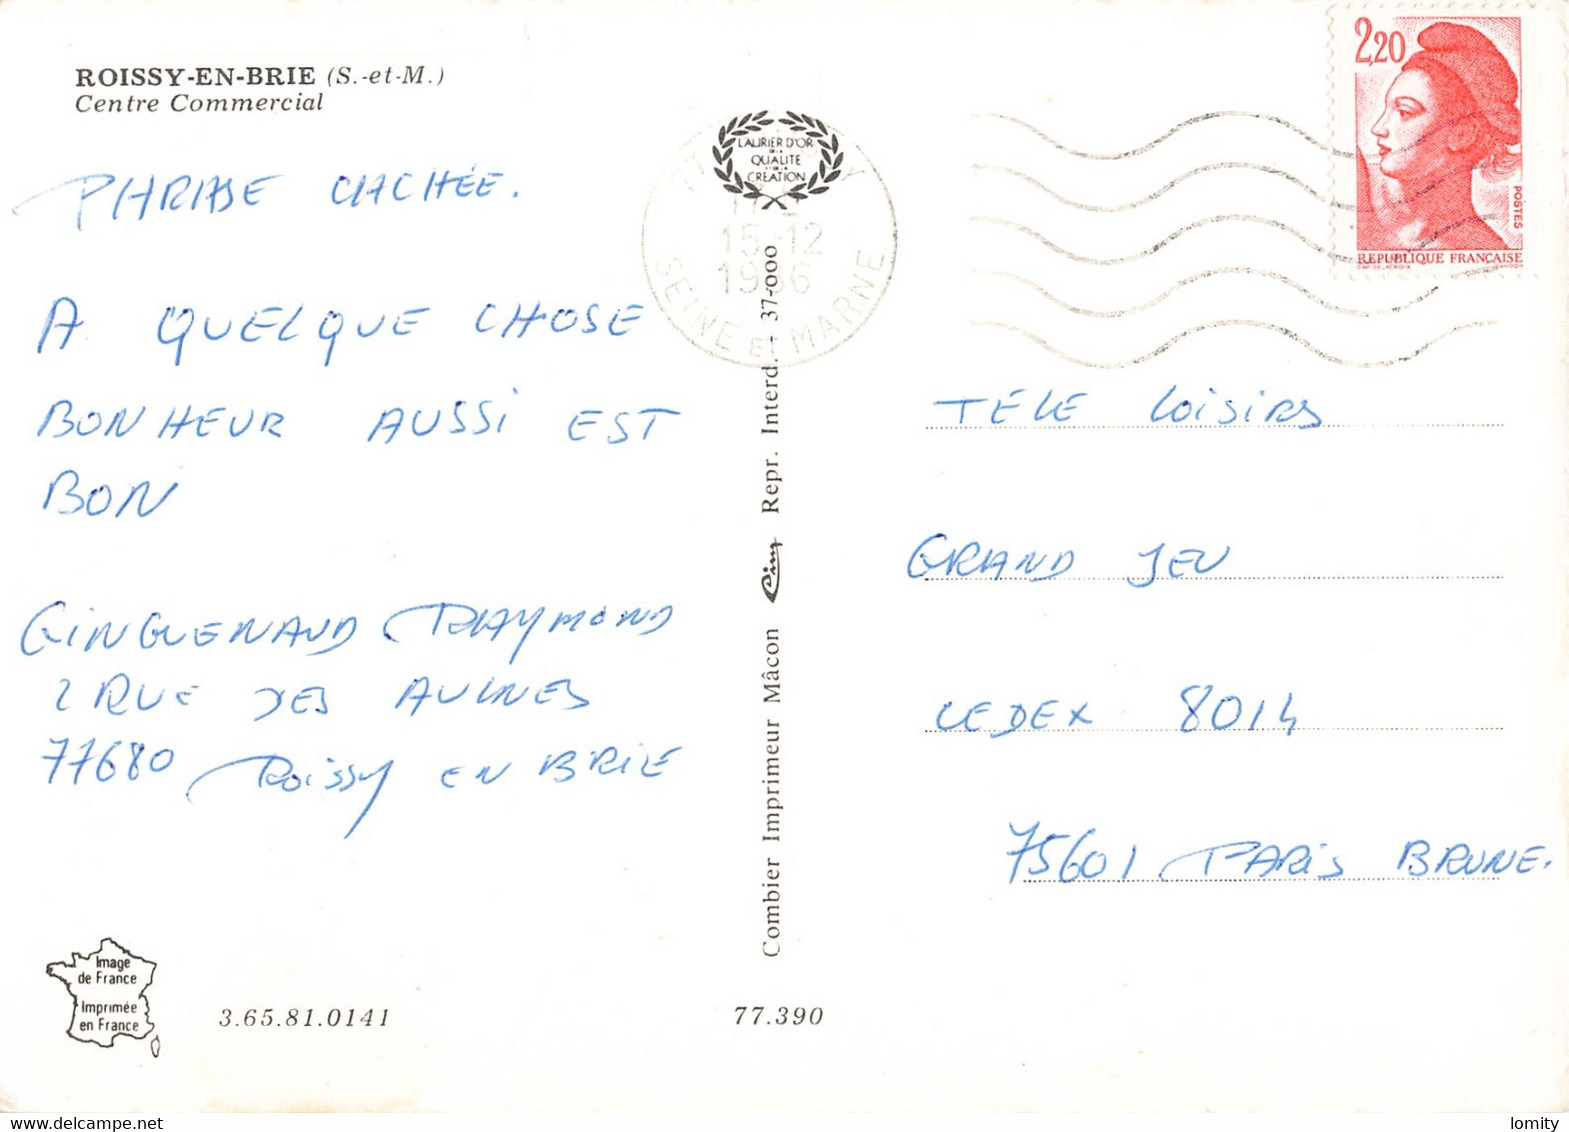 ROISSY-EN-BRIE (S.-et-M.)
Centre Commercial
PHRASE CACHÉE.
A QUELQUE CHOSE
BONHEUR AUSSI EST
BON
GINGUENAUD RAYMOND
2 RUE DES AULNES
77680 ROISSY EN BRIE
Image
de France
Imprimée
en France
3.65.81.0141
77.390
Combier Imprimeur Mâcon Cim Repr. Interd. 37-000
LAURIER D'OR
DE LA
QUALITE
ET DE LA
CREATION
15-12
1986
SEINE ET MARNE
2,20
POSTES
REPUBLIQUE FRANÇAISE
TÉLÉ LOISIRS
GRAND JEU
CEDEX 8014
75601 PARIS BRUNE.
lomity